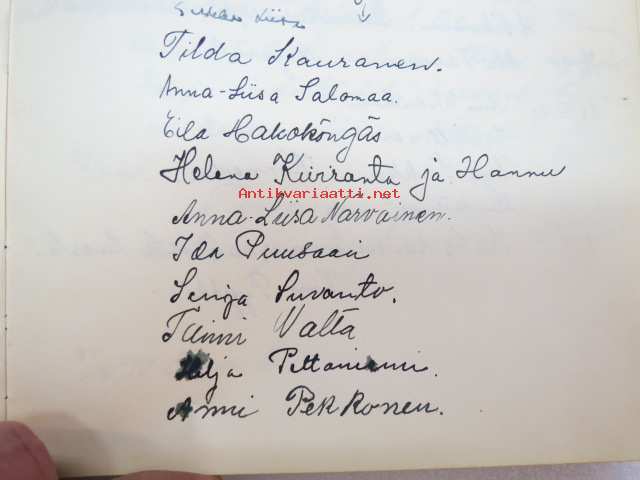 Tilda Kauranen.
Anna-Liisa Salomaa.
Eila Hakoköngäs
Helena Kiviranta ja Hannu
Antikvariaatti.net
Anna-Liisa Narvainen.
Ida Puusaari
Senja Suvanto.
Taimi Walta
Hilja
Anni Pekkonen.